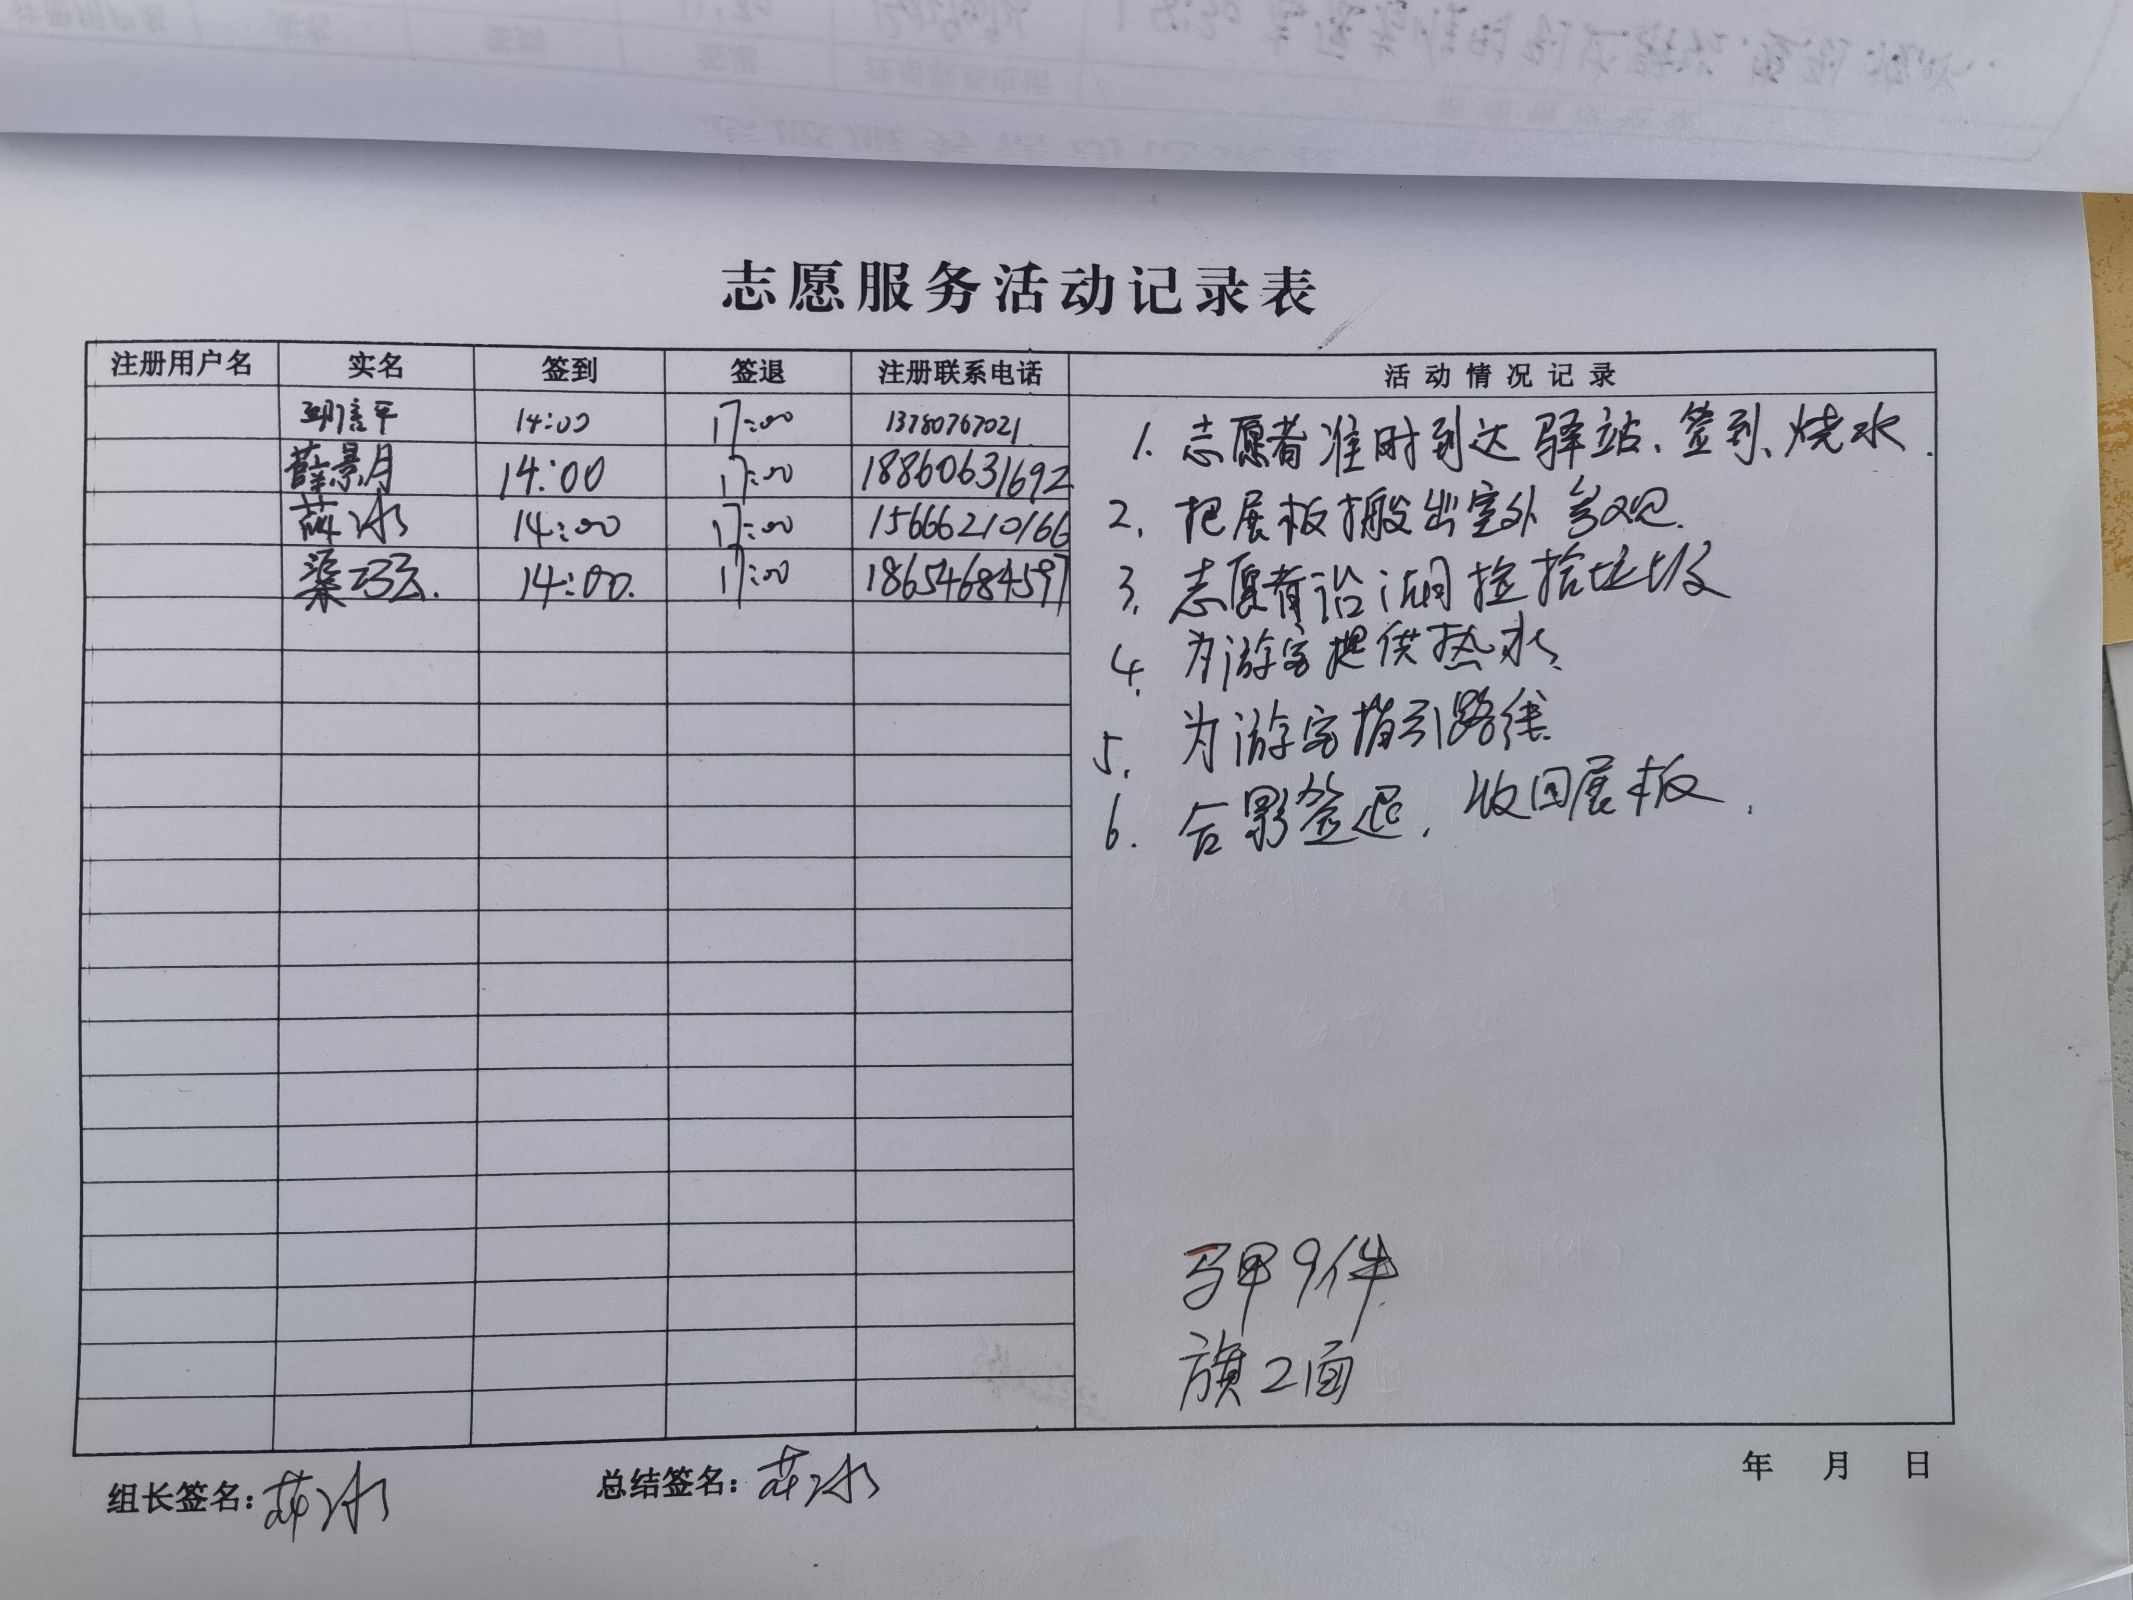 志愿服务活动记录表
注册用户名 实名 签到 签退 注册联系电话 活动情况记录
信平 14:00 17:00 13780767021
薛景月 14:00 17:00 18860631692
冰 14:00 17:00 15666210166
梁巧云. 14:00. 17:00 18654684597
1. 志愿者准时到达驿站、签到、烧水.
2. 把展板搬出室外参观.
3. 志愿者沿湖捡拾垃圾
4. 为游客提供热水.
5. 为游客指引路线.
6. 合影签退, 收回展板.
马甲9件
旗2面
组长签名: 冰
总结签名: 冰
年 月 日